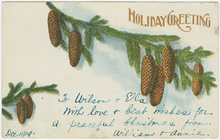 HOLIDAY GREETING
To Wilson & Ela
With love & best wishes for
a peaceful Christmas from
William & Annie.
Dec. 1909.